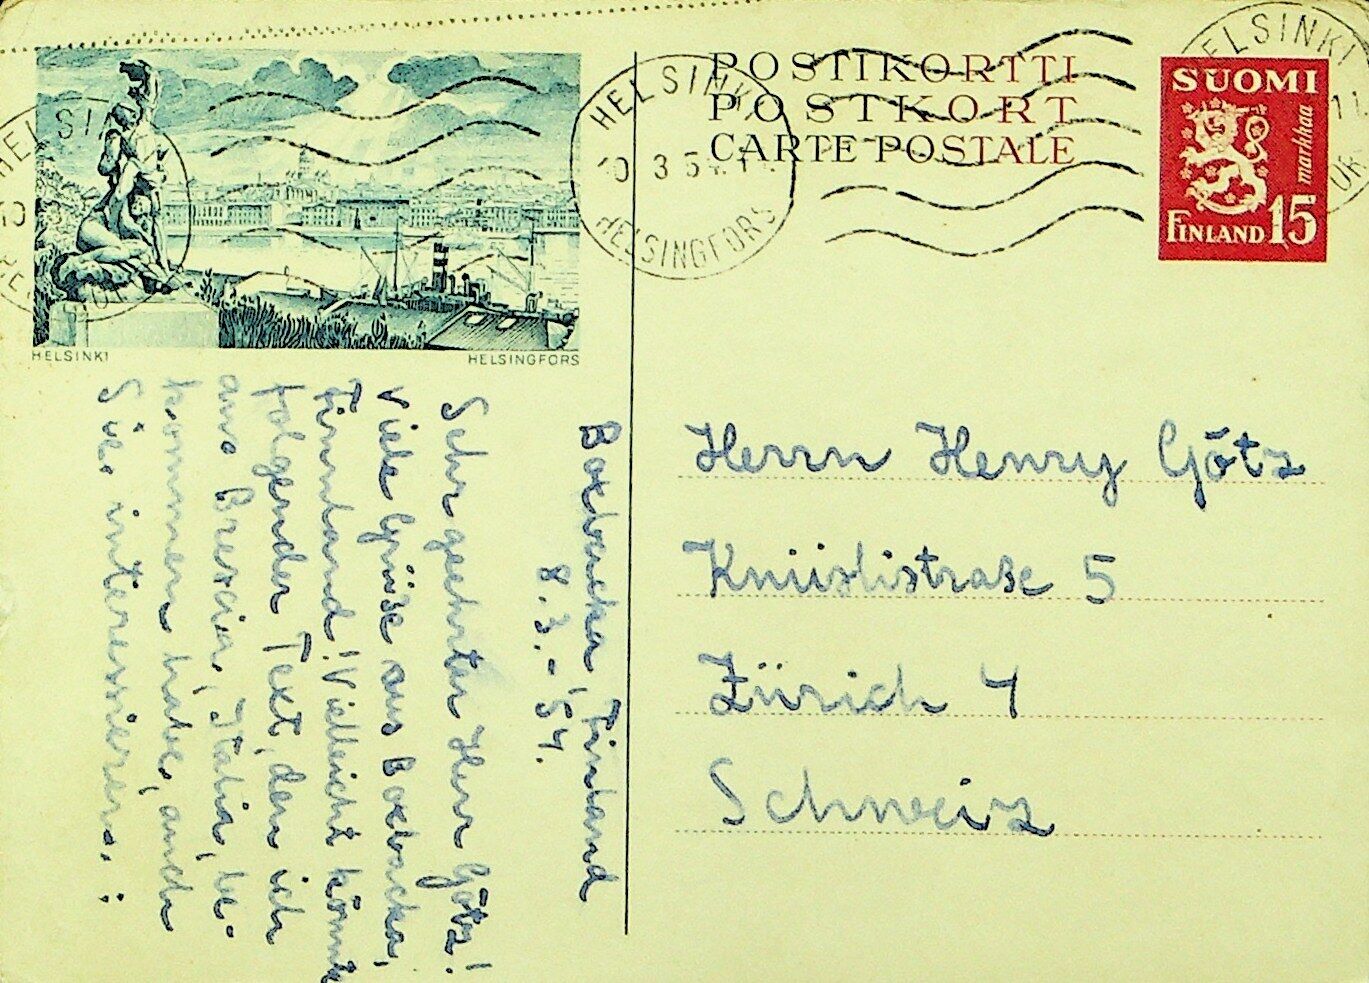 POSTIKORTTI
POSTKORT
CARTE POSTALE
SUOMI
15 markkaa
FINLAND
HELSINKI
10.3.54.
HELSINGFORS
HELSINKI
HELSINGFORS
Boxbacka, Finland
8.3.-54.
Sehr geehrter Herr Götz!
Viele Grüße aus Boxbacka,
Finnland! Vielleicht könnte
folgender Text, den ich
aus Brescia, Italia, be-
kommen habe, auch
Sie interessieren.:
Herrn Henry Götz
Knüslistraße 5
Zürich 4
Schweiz